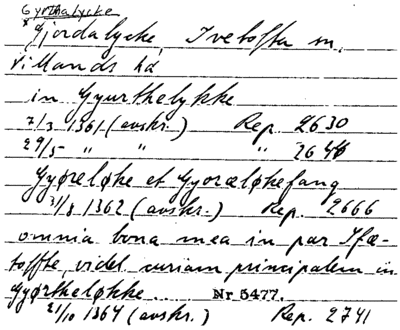 Gyrthalycke
Gjordalycke, Ivetofta sn,
Villands hd
in Gyurthelykke
7/3 1361 (avskr.) Rep. 2630
29/5 " " " 2644
Gyøreløke et Gyoræløkefang
31/8 1362 (avskr.) Rep. 2666
omnia bona mea in par Ifæ-
toffte, videl. curiam principalem in
Gyørtheløkke... Nr 5477.
21/10 1364 (avskr.) Rep. 2741